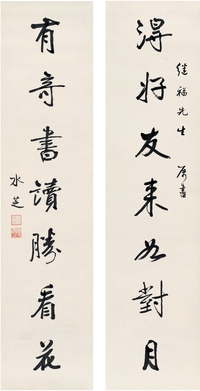 得好友来如對月
继福先生 属書
有奇書讀勝看花
冰芝